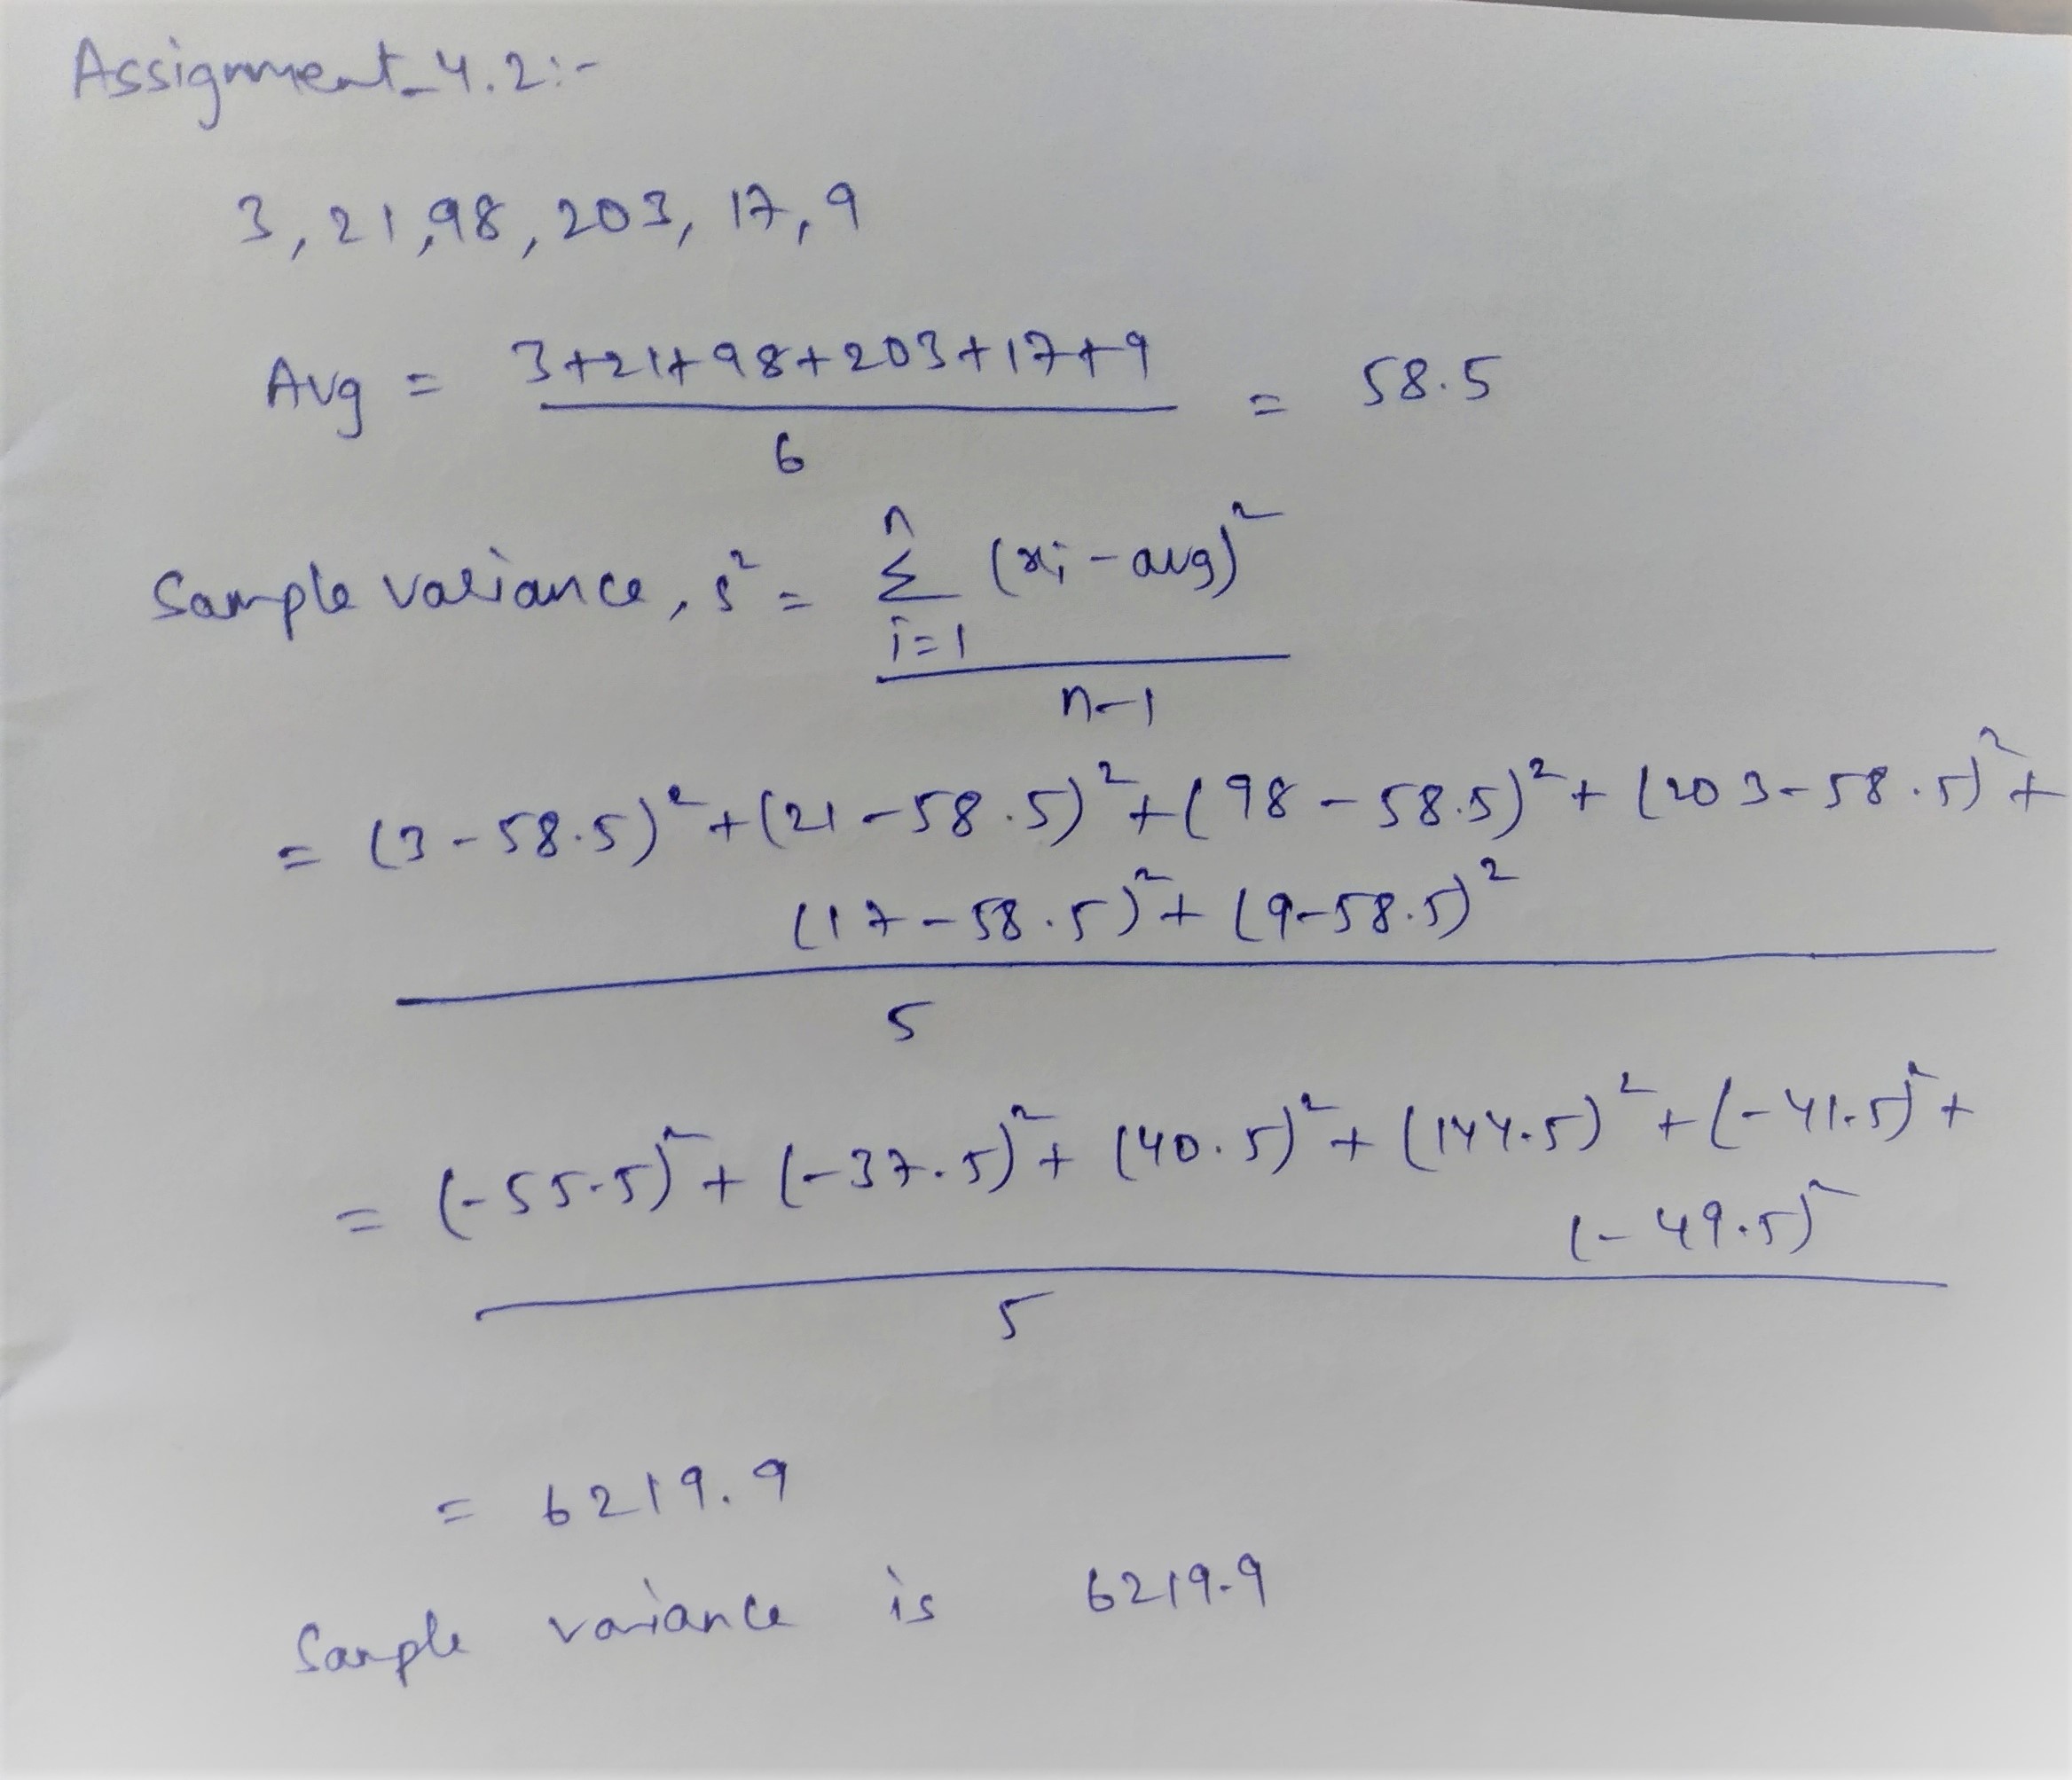 Assignment_4.2:-
3, 21, 98, 203, 17, 9
Avg = 3+21+98+203+17+9 = 58.5
6
Sample variance, s² = n Σ i=1 (xi - avg)²
n-1
= (3-58.5)²+(21-58.5)²+(98-58.5)²+(203-58.5)²+
(17-58.5)²+(9-58.5)²
5
= (-55.5)²+(-37.5)²+(40.5)²+(144.5)²+(-41.5)²+
(-49.5)²
5
= 6219.9
Sample variance is 6219.9